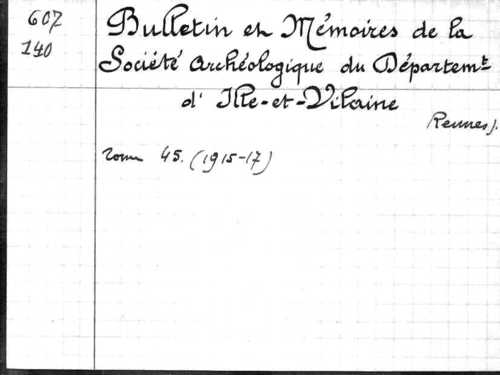 607
140
Bulletin et Mémoires de la
Société Archéologique du Départemt
d'Ille-et-Vilaine
Rennes).
Tome 45. (1915-17)